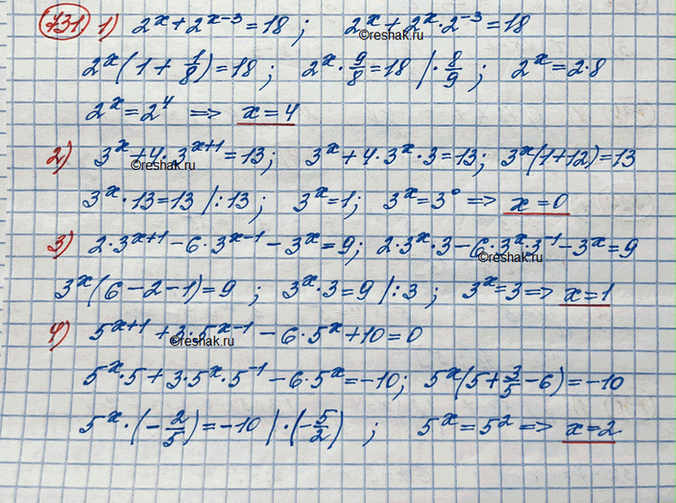 731. 1) 2^x + 2^(x-3) = 18 ; 2^x + 2^x · 2^(-3) = 18
©reshak.ru
2^x (1 + 1/8) = 18 ; 2^x · 9/8 = 18 | · 8/9 ; 2^x = 2·8
2^x = 2^4 => x = 4
2) 3^x + 4 · 3^(x+1) = 13; 3^x + 4 · 3^x · 3 = 13; 3^x (1+12) = 13
©reshak.ru
3^x · 13 = 13 | : 13 ; 3^x = 1; 3^x = 3^0 => x = 0
3) 2 · 3^(x+1) - 6 · 3^(x-1) - 3^x = 9; 2 · 3^x · 3 - 6 · 3^x · 3^(-1) - 3^x = 9
©reshak.ru
3^x (6 - 2 - 1) = 9 ; 3^x · 3 = 9 | : 3 ; 3^x = 3 => x = 1
4) 5^(x+1) + 3 · 5^(x-1) - 6 · 5^x + 10 = 0
©reshak.ru
5^x · 5 + 3 · 5^x · 5^(-1) - 6 · 5^x = -10; 5^x (5 + 3/5 - 6) = -10
5^x · (-2/5) = -10 | · (-5/2) ; 5^x = 5^2 => x = 2